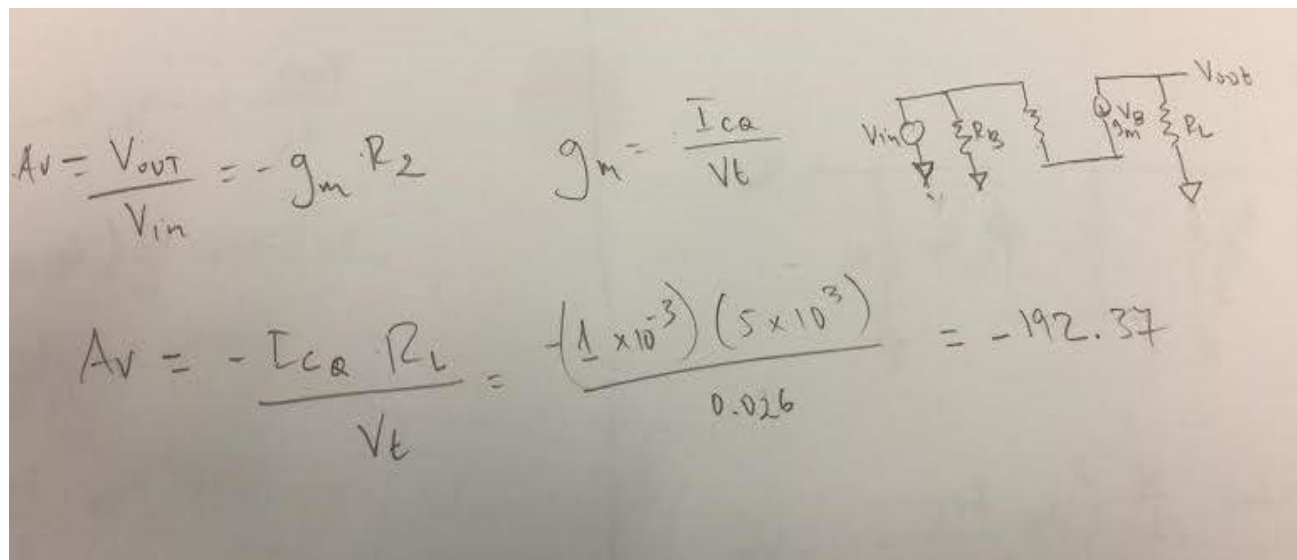 Av = VOUT / Vin = - gm R2
gm = ICQ / Vt
Vin RB gm VB RL Vout
Av = - ICQ RL / Vt = -(1 x10^-3) (5 x10^3) / 0.026 = -192.37